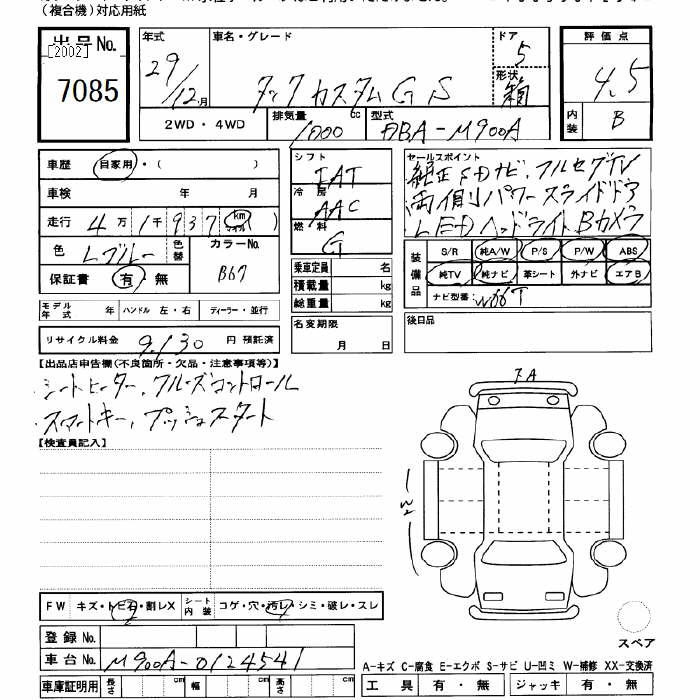 (複合機)対応用紙
出品No.
[2002]
7085
年式
29/12月
車名・グレード
タック カスタム G S
ドア
5
形状
箱
評価点
4.5
2WD・4WD
排気量
1000 cc
型式
DBA-M900A
内装
B
車歴
自家用・( )
車検 年 月
走行 4万1千937 km マイル )
色
Lブルー
色替
カラーNo.
B67
保証書 有・無
シフト
IAT
冷房
AAC
燃料
G
乗車定員 名
積載量 kg
総重量 kg
セールスポイント
純正SDナビ、フルセグTV
両側パワースライドドア
LEDヘッドライト、Bカメラ
装備品
S/R 純A/W P/S P/W ABS
純TV 純ナビ 革シート 外ナビ エアB
ナビ型番: W66T
モデル年式 年 ハンドル 左・右 ディーラー・並行
リサイクル料金 9,130 円 預託済
名変期限
月 日
後日品
【出品店申告欄(不良箇所・欠品・注意事項等)】
・シートヒーター、クルーズコントロール
・スマートキー、プッシュスタート
【検査員記入】
FW キズ・トビ石・割レX シート内装 コゲ・穴・汚レ・シミ・破レ・スレ
登録No.
車台No. M900A-0124541
車庫証明用 長さ cm 幅 cm 高さ cm
FA
W2
スペア
A-キズ C-腐食 E-エクボ S-サビ U-凹ミ W-補修 XX-交換済
工具 有・無 ジャッキ 有・無